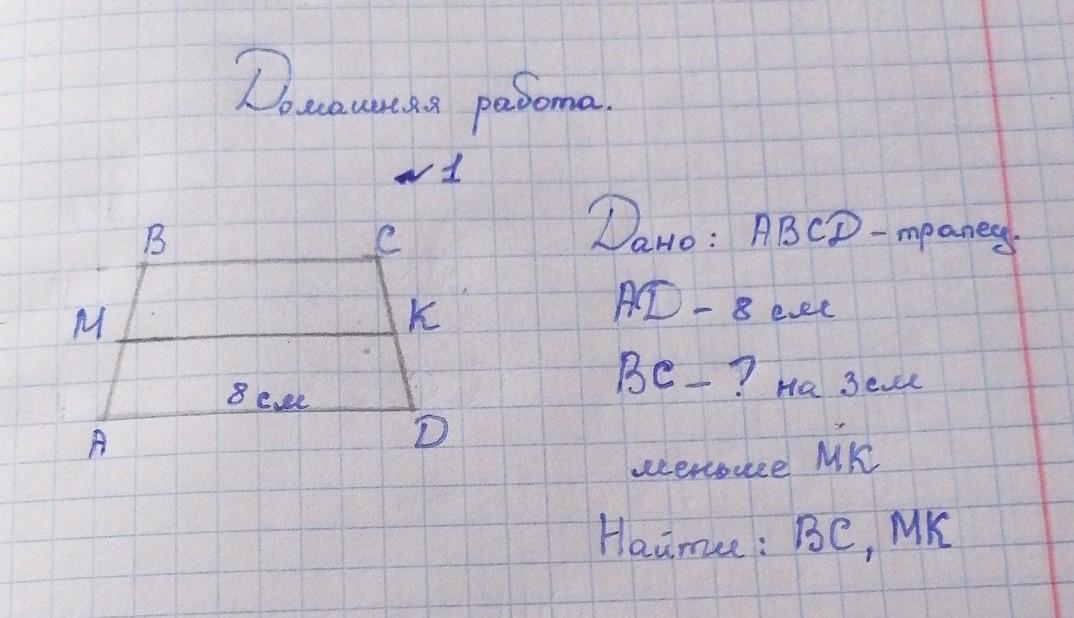 Домашняя работа.
~ 1
B C
M K
8 см
A D
Дано: ABCD - трапец.
AD - 8 см
BC - ? на 3 см
меньше MK
Найти: BC, MK